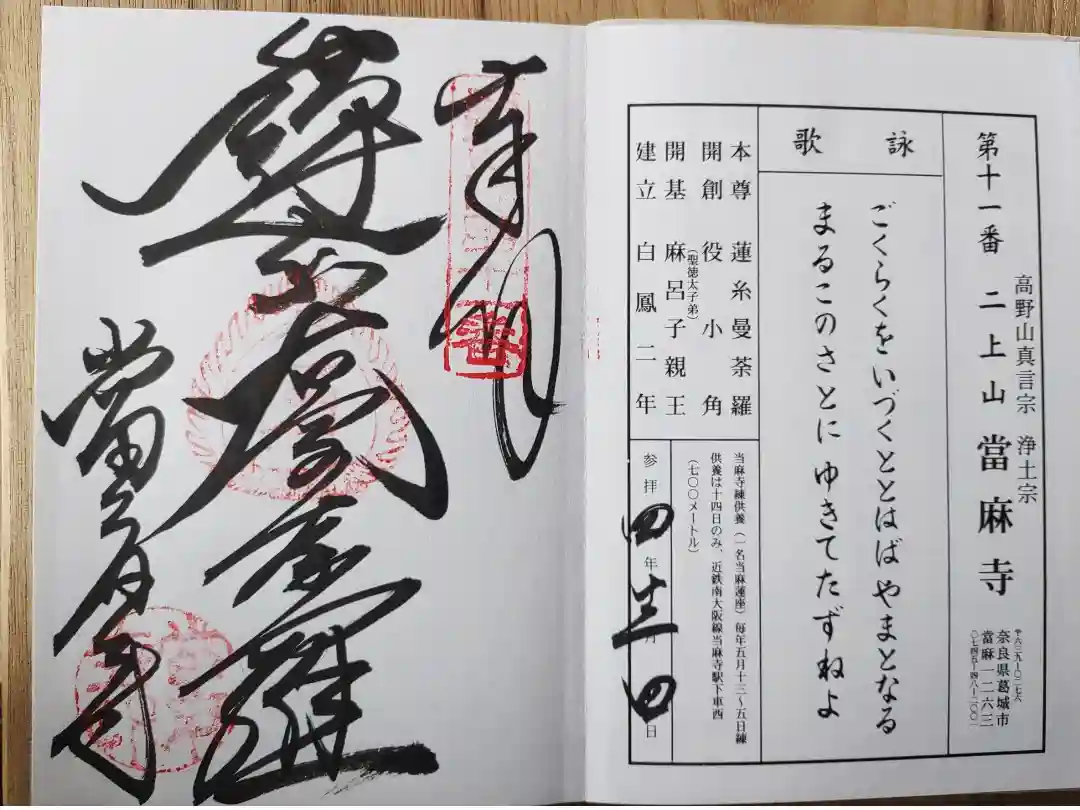 高野山真言宗 浄土宗
第十一番 二上山 當麻寺
〒六三九ー〇二七六
奈良県葛城市
當麻一二六三
〇七四五ー四八ー二〇〇一
詠歌
ごくらくをいづくととはばやまとなる
まるこのさとにゆきてたずねよ
本尊 蓮糸曼荼羅
開創 役小角
(聖徳太子弟)
開基 麻呂子親王
建立 白鳳二年
当麻寺練供養(一名当麻蓮座)毎年五月十三〜五日練
供養は十四日のみ、近鉄南大阪線当麻寺駅下車西
(七〇〇メートル)
参拝 四年十二月四日
奉拝
蓮糸曼荼羅
當麻寺